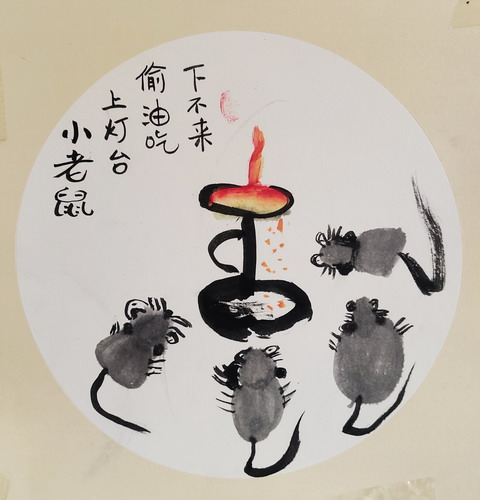 小老鼠
上灯台
偷油吃
下不来